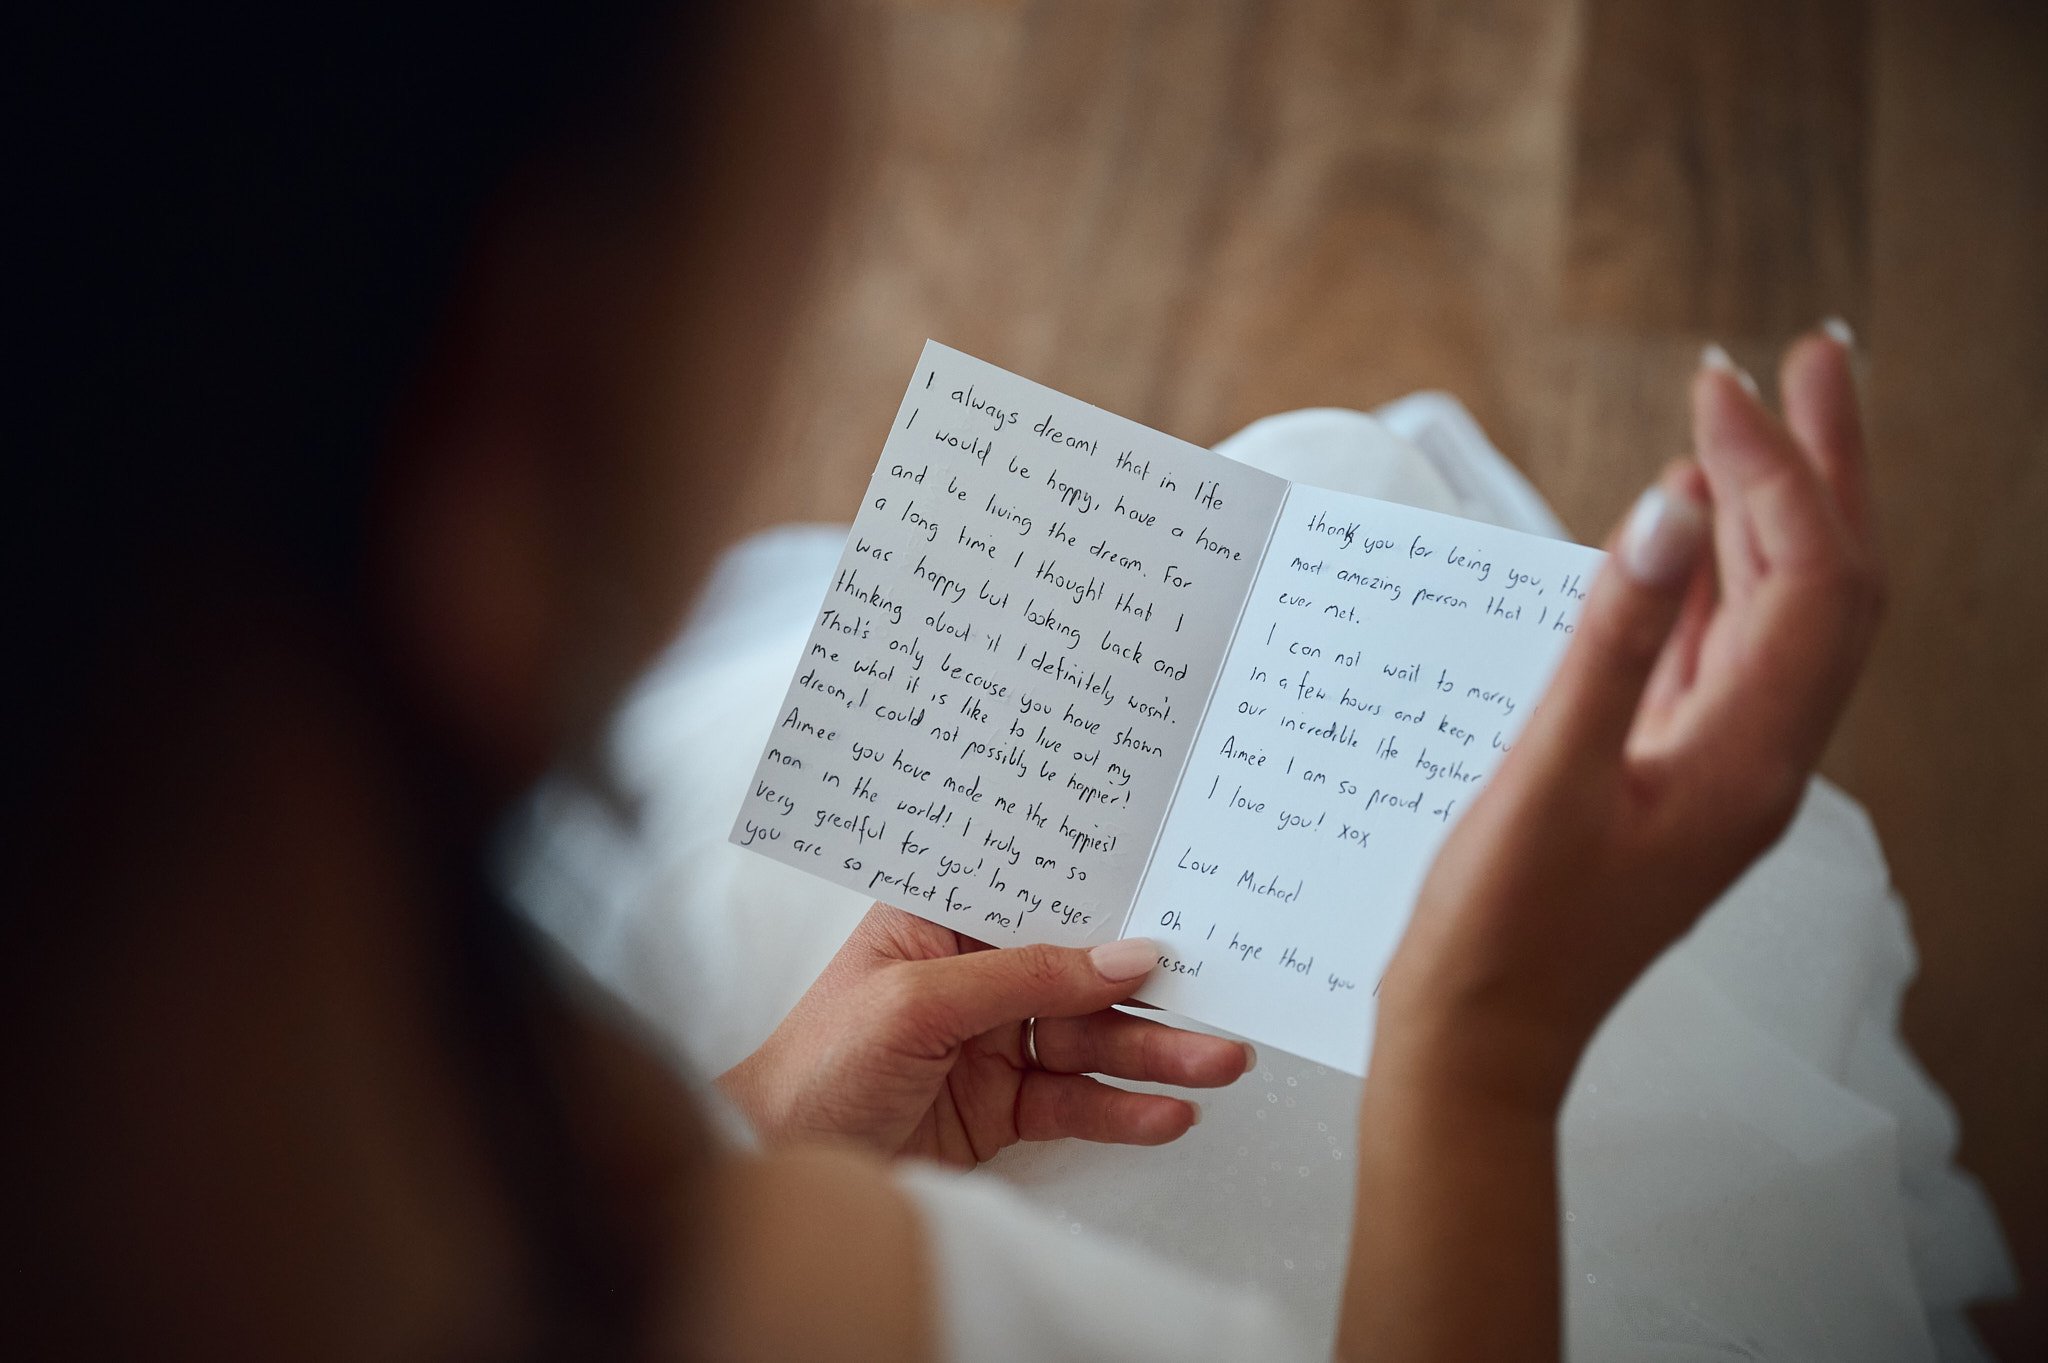 I always dreamt that in life
I would be happy, have a home
and be living the dream. For
a long time I thought that I
was happy but looking back and
thinking about it I definitely wasn't.
That's only because you have shown
me what it is like to live out my
dream, I could not possibly be happier!
Aimee you have made me the happiest
man in the world! I truly am so
very greatful for you! In my eyes
you are so perfect for me!
thank you for being you, the
most amazing person that I
ever met.
I can not wait to marry
in a few hours and keep
our incredible life together
Aimee I am so proud of
I love you! xox
Love Michael
Oh I hope that you
resent